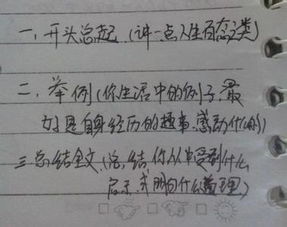 一、开头总起(讲一点人生百态之类)
二、举例(你生活中的例子,最
好是自身经历的趣事,感动什么的)
三总结全文(总结你从中受到什么
启示,或明白什么道理)